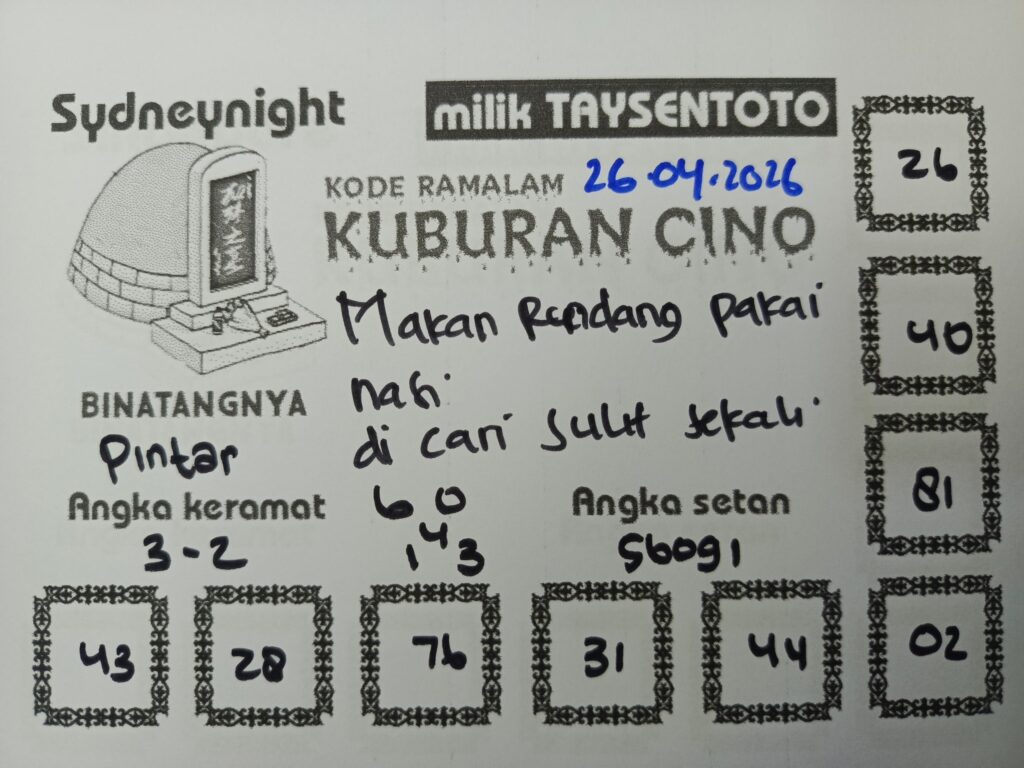 Sydneynight
milik TAYSENTOTO
KODE RAMALAM 26.04.2026
KUBURAN CINO
Makan Rendang pakai
nasi
di cari sulit sekali
BINATANGNYA
Pintar
Angka keramat
3-2
60
143
Angka setan
56091
26
40
81
02
43
28
76
31
44